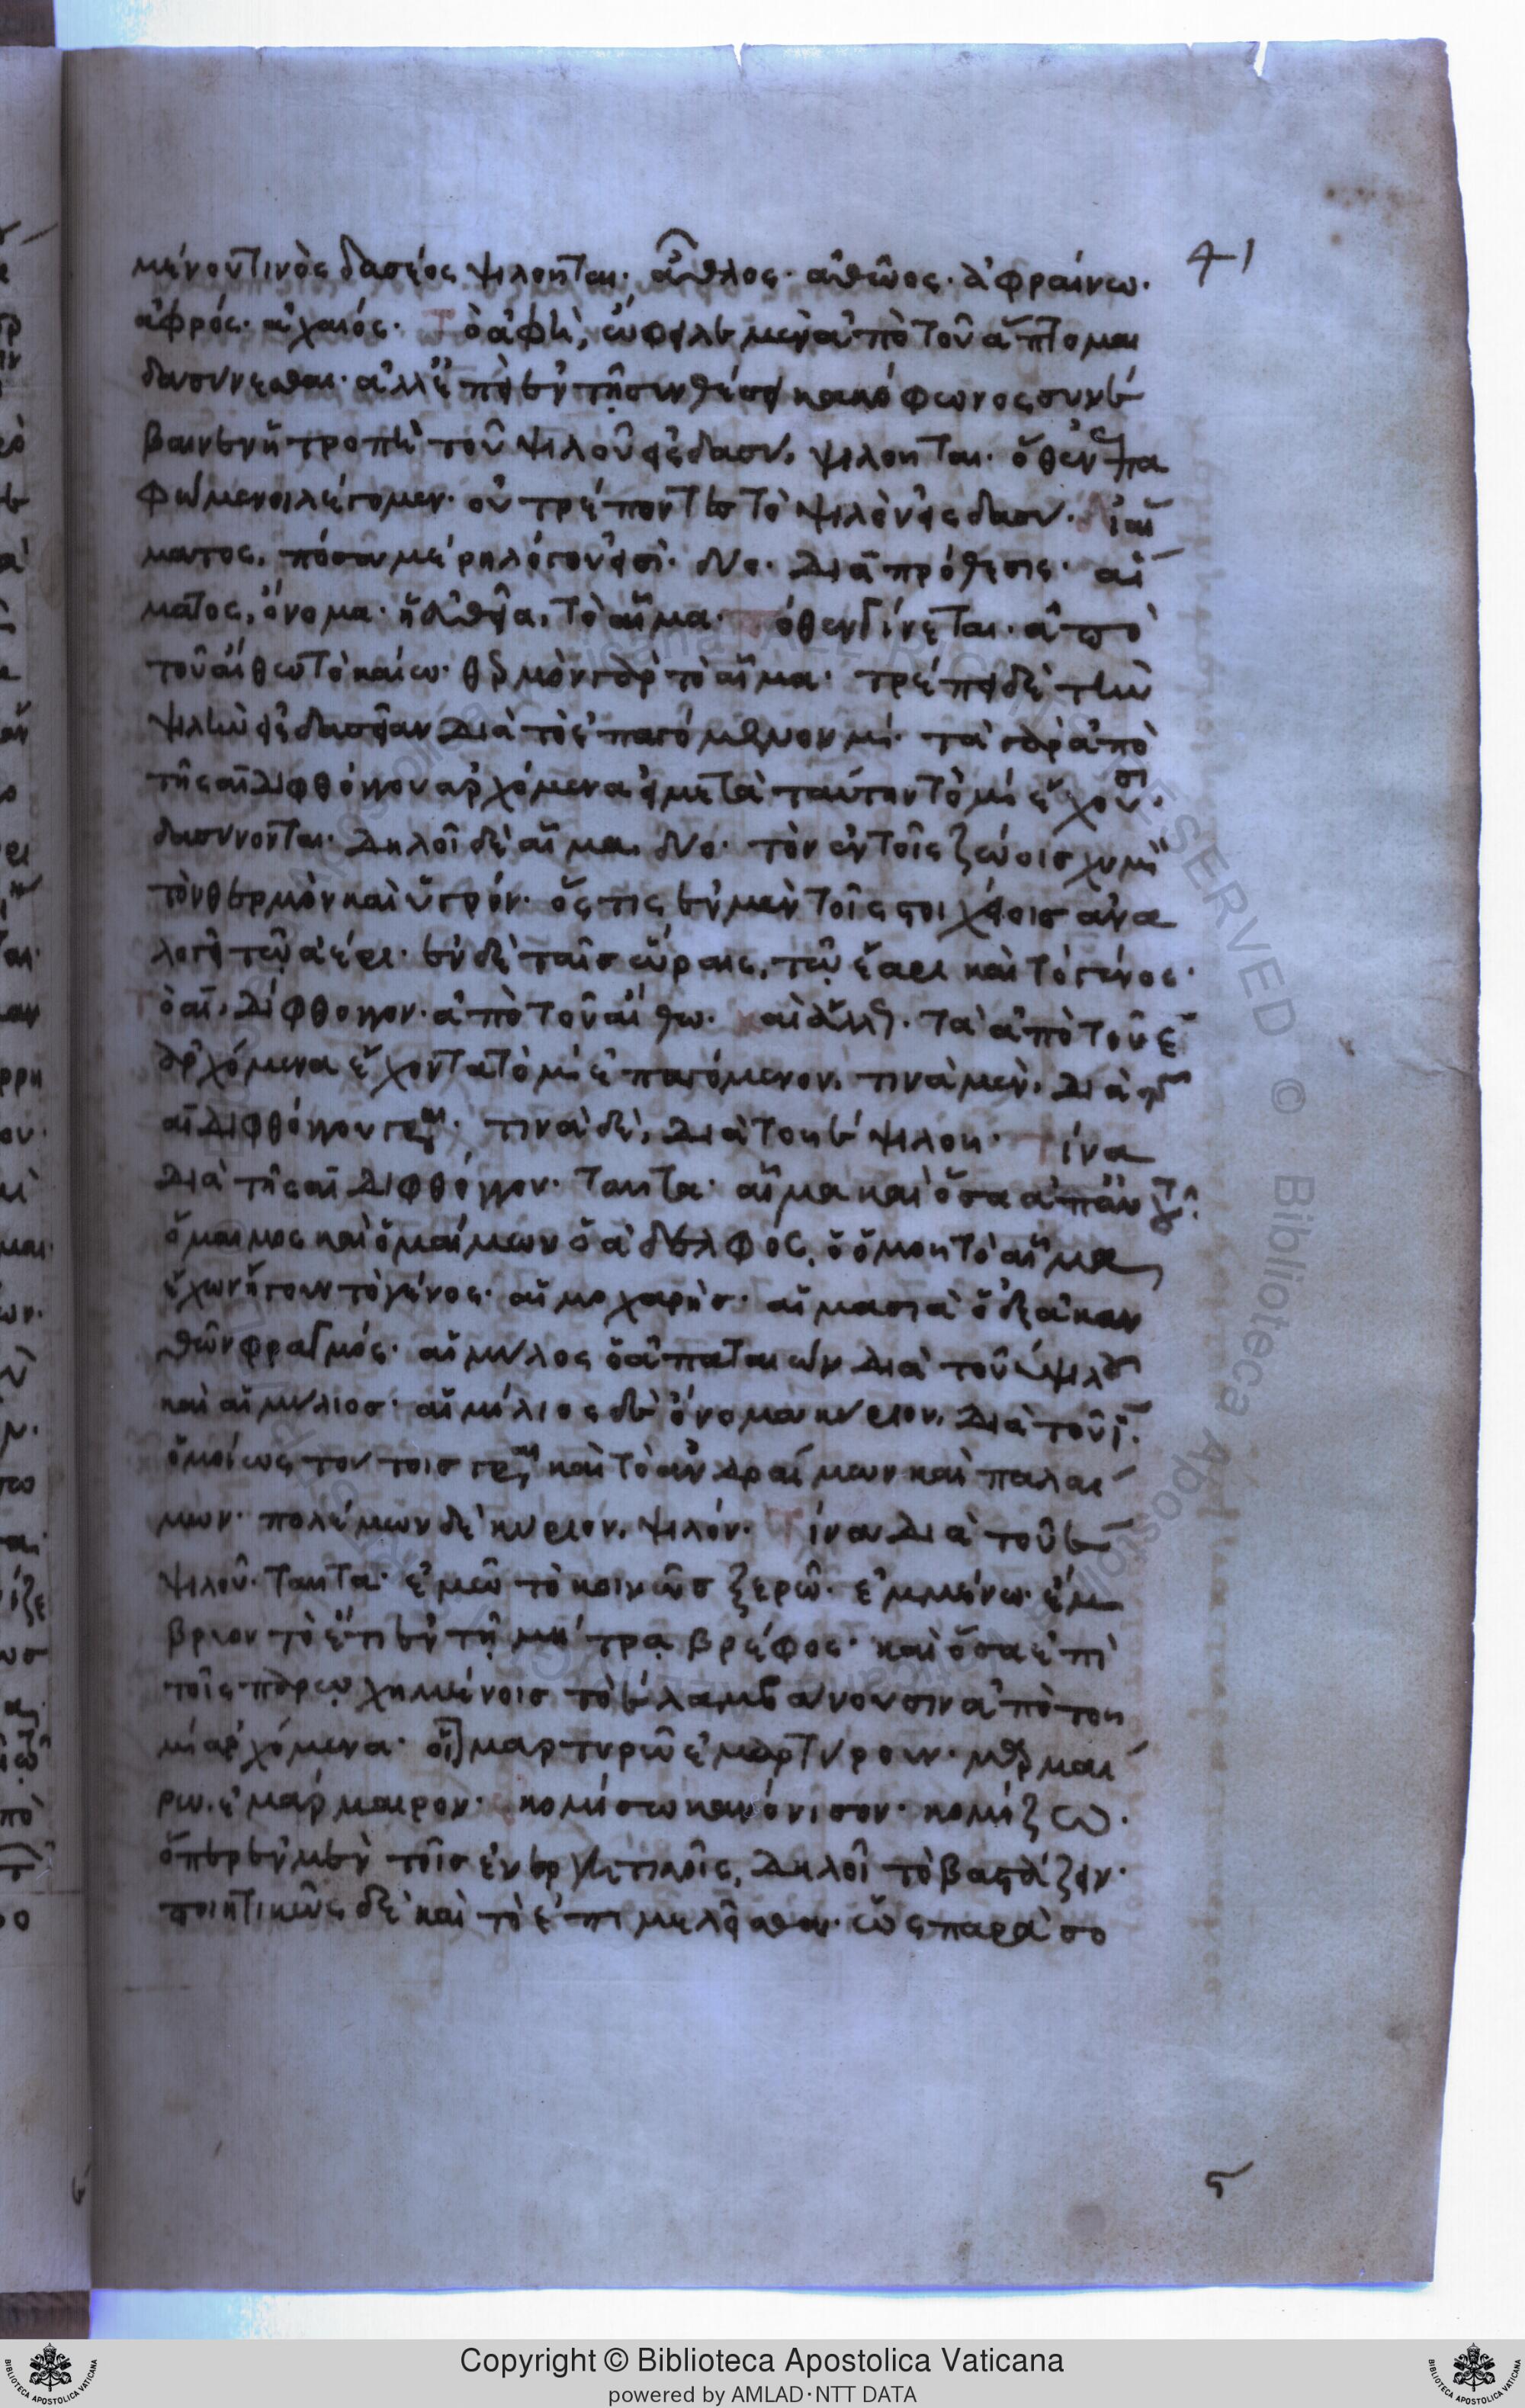 41
μένου τινὸς δασέος ψιλοῦται· ἆθλος· ἀθῶος· ἀφραίνω·
ἀφρός· ἀχαιός· τὸ ἀφὴ, ὤφειλε μὲν ἀπὸ τοῦ ἅπτομαι
δασύνεσθαι· ἀλλ' ἐπεὶ ἐν τῇ συνθέσει κακόφωνος συνέ
βαινεν ἡ τροπὴ τοῦ ψιλοῦ εἰς δασύ, ψιλοῦται· ὅθεν
λέγομεν· οὐ τρέποντες τὸ ψιλὸν εἰς δασύ· αἵ
ματος, πόσα μέρη λόγου εἰσί· δύο· Διὰ πρόθεσις· αἵ
ματος, ὄνομα· ἡ εὐθεῖα, τὸ αἷμα· πόθεν γίνεται· ἀπὸ
τοῦ αἴθω τὸ καίω· θερμὸν γὰρ τὸ αἷμα· τρέπει δὲ τὴν
ψιλὴν εἰς δασεῖαν Διὰ τὸ ἐπαγόμενον μ· τὰ γὰρ ἀπὸ
τῆς αι Διφθόγγου ἀρχόμενα εἰ μετὰ ταύτην τὸ μ ἔχουσι·
δασύνονται· Δηλοῖ δὲ αἷμα, δύο· τὸν ἐν τοῖς ζώοις χυμὸν
τὸν θερμὸν καὶ ὑγρόν· ὅστις ἐν μὲν τοῖς στοιχείοις ἀνα
λογεῖ τῷ ἀέρι· ἐν δὲ ταῖς ὥραις, τῷ ἔαρι καὶ τὸ γένος·
τὸ αι, Δίφθογγον· ἀπὸ τοῦ αἴθω· καὶ ἄλλως· Τὰ ἀπὸ τοῦ ε
ἀρχόμενα ἔχοντα τὸ μ ἐπαγόμενον, τινὰ μὲν, Διὰ τῆς
αι Διφθόγγου γράφεται· τινὰ δὲ, Διὰ τοῦ ε ψιλοῦ· τίνα
Διὰ τῆς αι Διφθόγγου· Ταῦτα· αἷμα καὶ ὅσα ἀπ' αὐτοῦ·
ὅμαιμος καὶ ὁμαίμων ὁ ἀδελφὸς, ὁ ὁμοῦ τὸ αἷμα
ἔχων ἤγουν τὸ γένος· αἱμοχαρής· αἱμασιὰ ὁ ἐξ ἀκαν
θῶν φραγμός· αἱμύλος ὁ ἀπαταιὼν Διὰ τοῦ υ ψιλοῦ
καὶ αἱμύλιος· αἱμίλιος δὲ ὄνομα κύριον, Διὰ τοῦ ι·
ὁμοίως τούτοις γράφεται καὶ τὸ ἀνδραίμων καὶ παλαί
μων· πολέμων δὲ κύριον, ψιλόν· Τίνα Διὰ τοῦ ε
ψιλοῦ· Ταῦτα· ἐμῶ τὸ κοινῶς ξερῶ· ἐμμένω· ἔμ
βρυον τὸ ἔτι ἐν τῇ μήτρᾳ βρέφος· καὶ ὅσα ἐπὶ
τοῖς παρῳχημένοις τὸ ε λαμβάνουσιν ἀπὸ τοῦ
μ ἀρχόμενα· οἷον μαρτυρῶ ἐμαρτύρουν· μαρμαί
ρω, ἐμάρμαιρον· κομίσω κανόνισον· κομίζω·
ὅπερ ἐν μὲν τοῖς ἐνεργητικοῖς, Δηλοῖ τὸ βαστάζειν·
ποιητικῶς δὲ καὶ τὸ ἐπιμελεῖσθαι· ὡς παρὰ σο
5
Copyright © Biblioteca Apostolica Vaticana
powered by AMLAD·NTT DATA